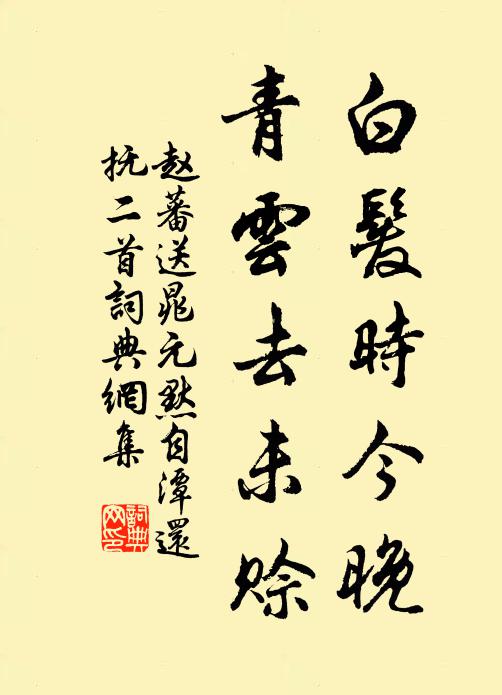 白髮時今晚
青雲去未賒
赵蕃送晁元默自潭還
抚二首詞典網集
詞典網印